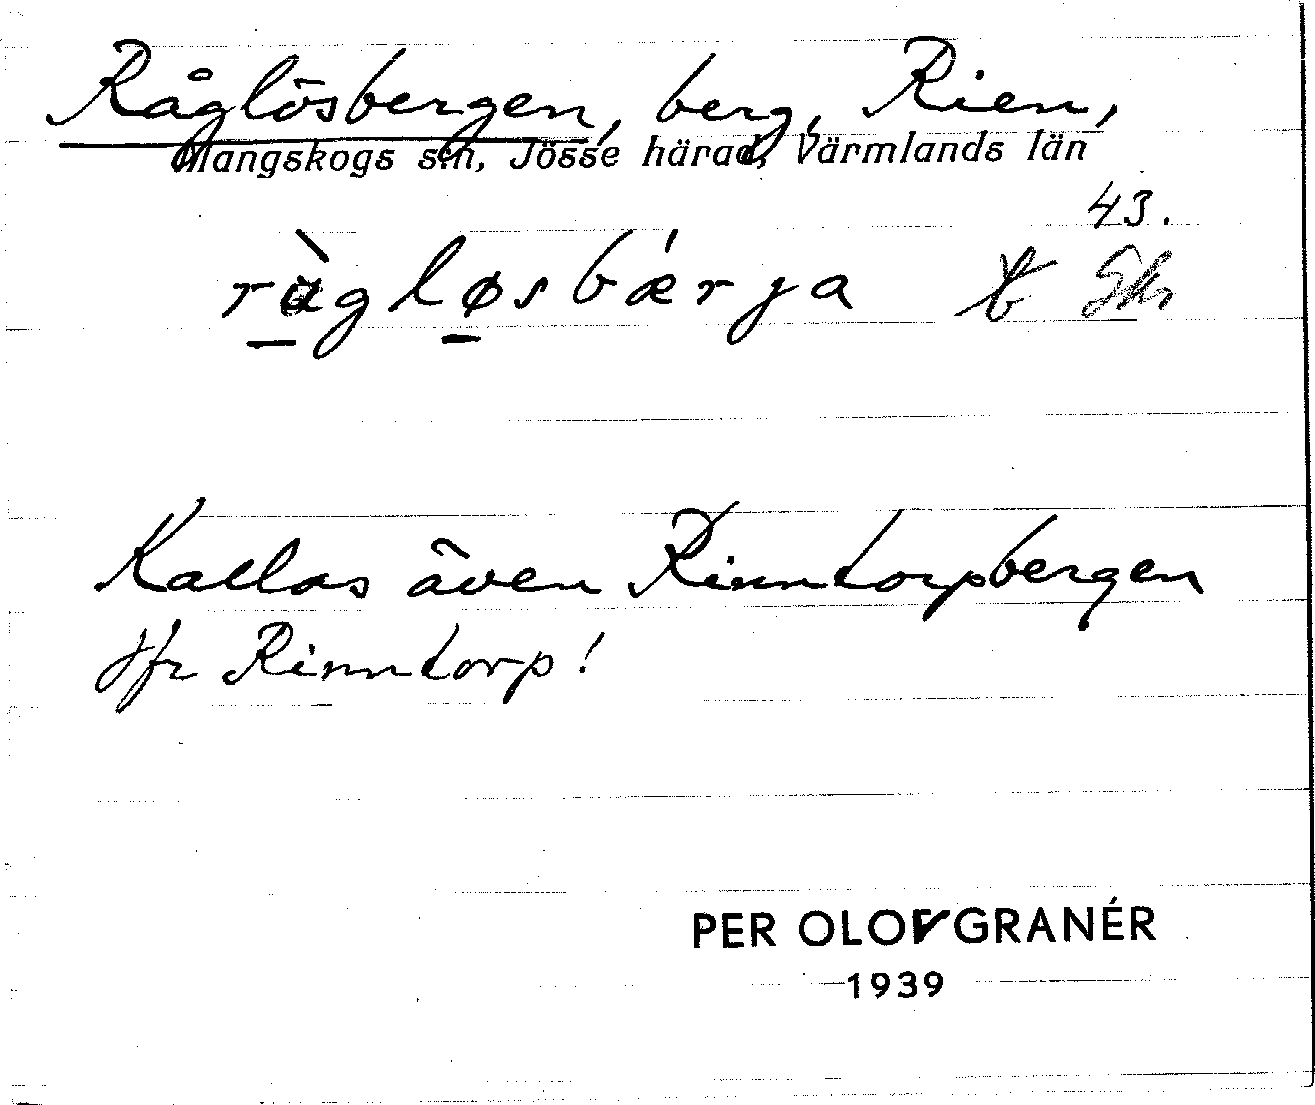 Råglösbergen, berg, Rien,
Mangskogs sn, Jösse härad, Värmlands län
43.
ràgløsbǽrja
Kallas även Rinntorpbergen
Jfr Rinntorp!
PER OLOV GRANÉR
1939